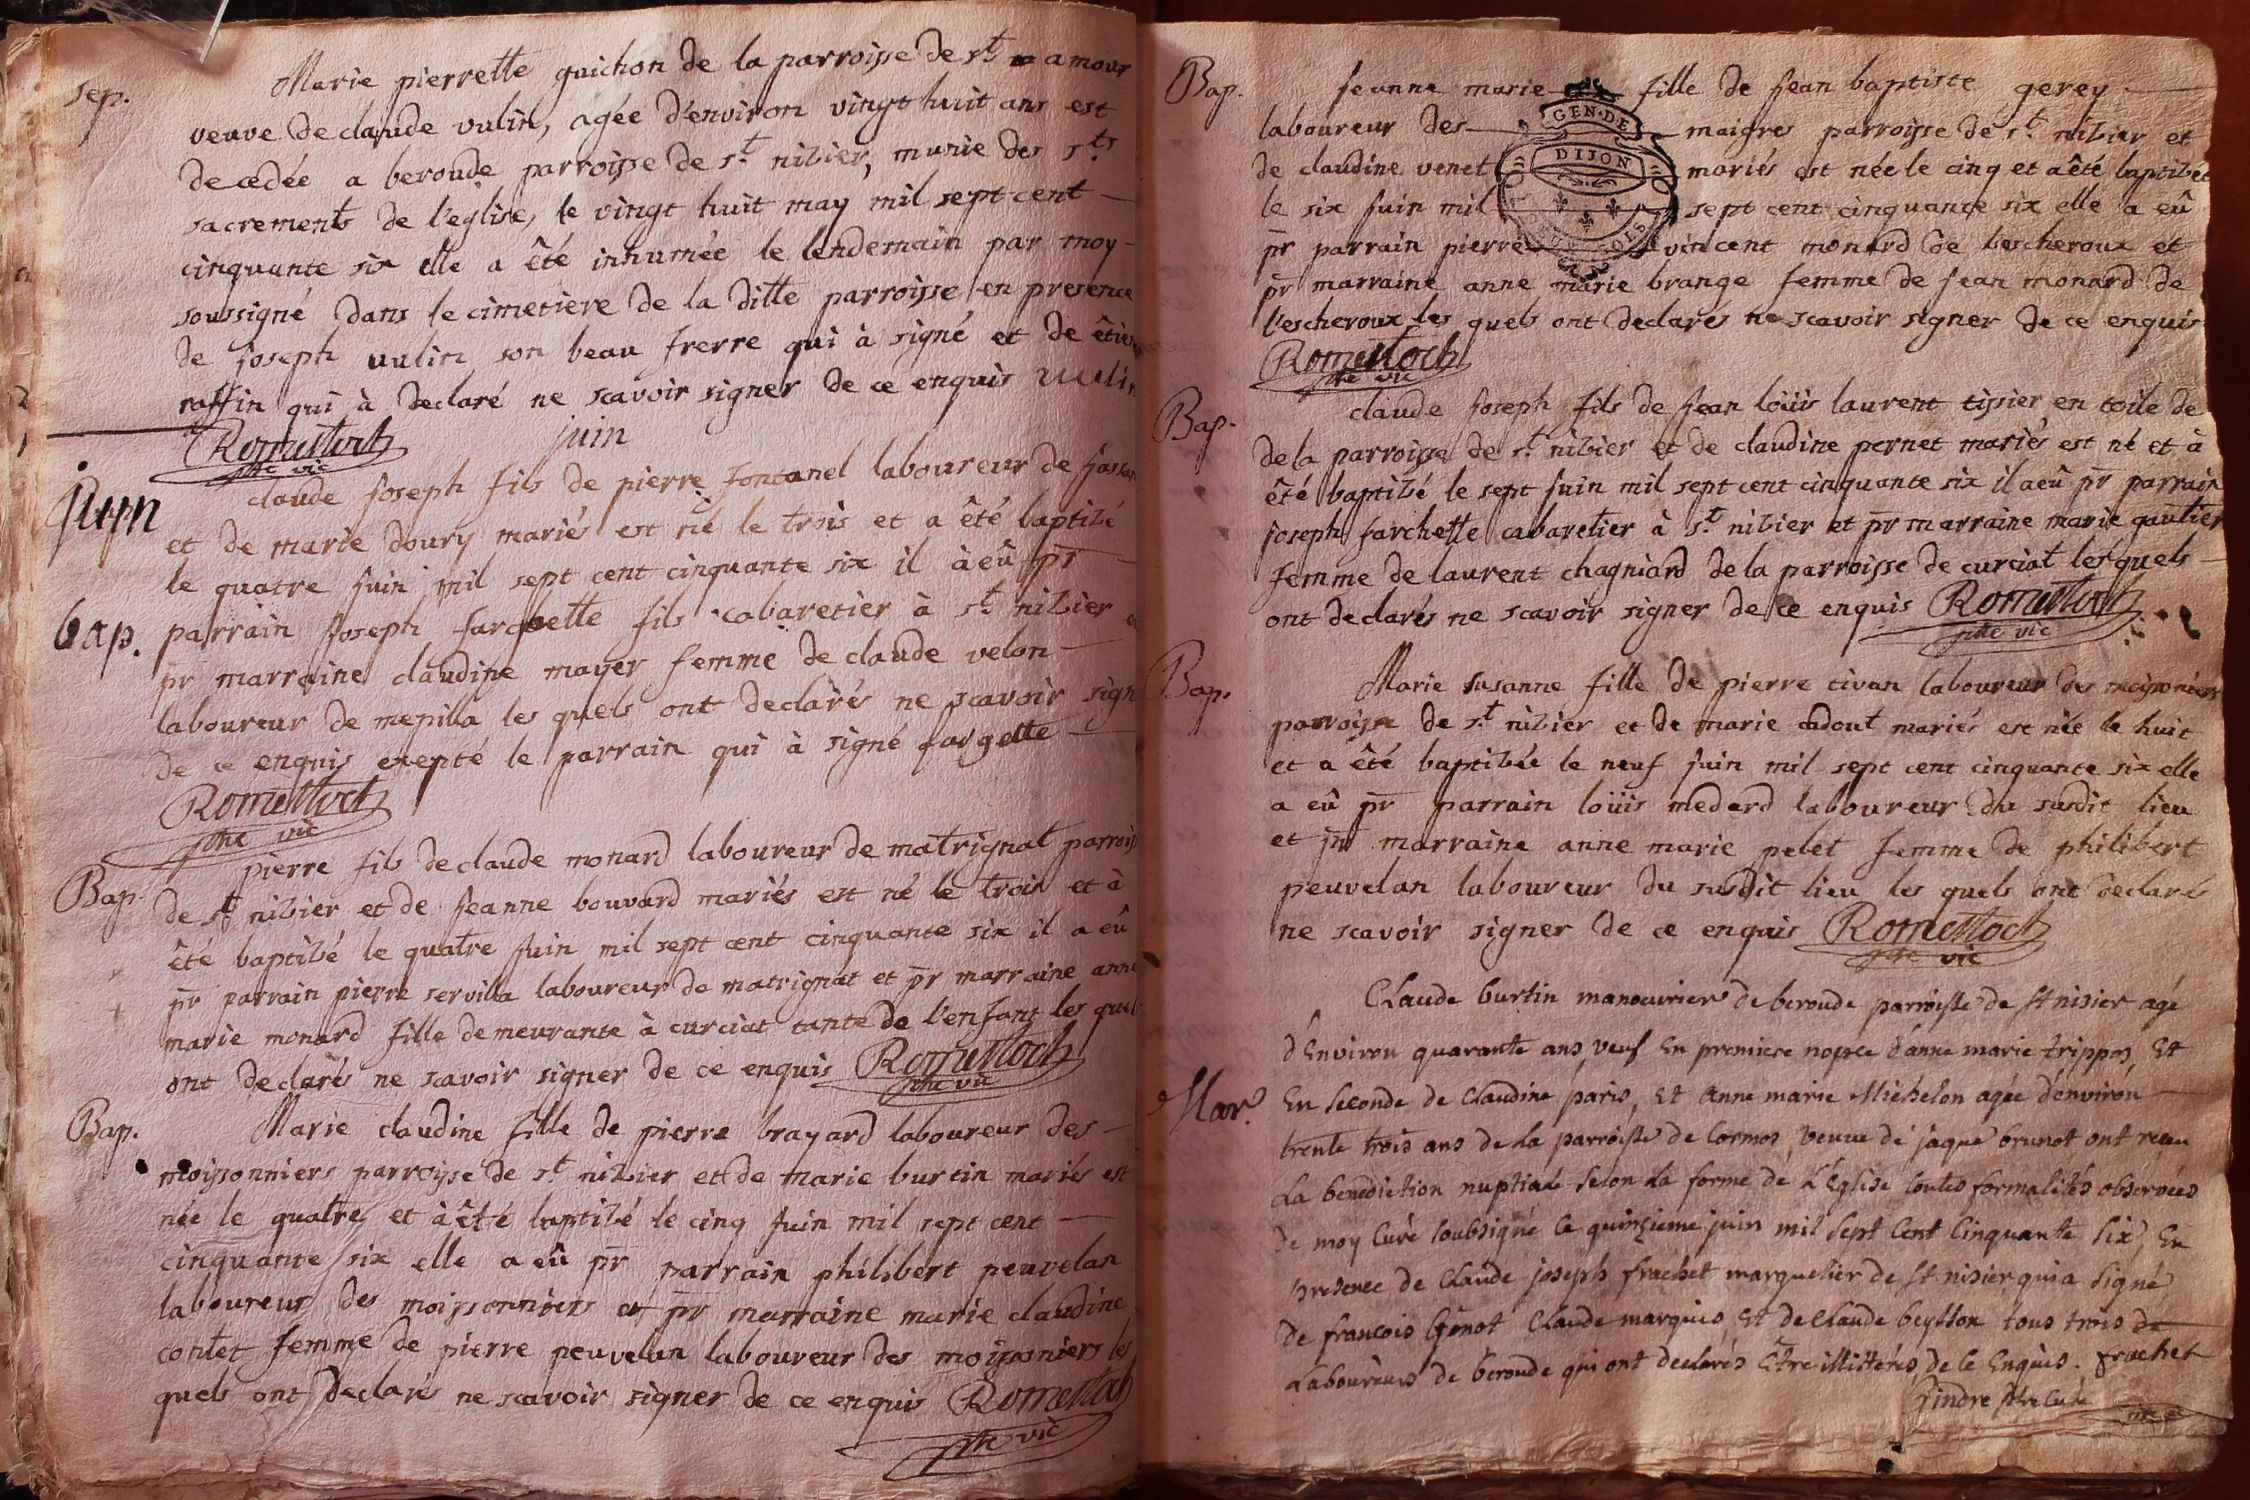 sep.
Marie pierrette guichon de la parroisse de st amour
veuve de claude vulin, agée d'environ vingt huit ans est
decedée a beroude parroisse de st nizier, munie des sts
sacrements de l'eglise, le vingt huit may mil sept cent
cinquante six elle a êté inhumée le lendemain par moy
soussigné dans le cimetiere de la ditte parroisse en presence
de joseph vulin son beau frerre qui à signé et de
raffin qui à declaré ne scavoir signer de ce enquis vulin
Romestoch juin
ptre vic
claude joseph fils de pierre fontanel laboureur de
juin
et de marie doury mariés est né le trois et a êté baptizé
le quatre juin mil sept cent cinquante six il à eû pr
bap. parrain joseph fils cabaretier à st nizier
pr marraine claudine mayer femme de claude velon
laboureur de mepilla les quels ont declarés ne scavoir sign
de ce enquis exepté le parrain qui à signé fargette
Romestoch
ptre vic
Bap. pierre fils de claude monard laboureur de matrignat parrois
de st nizier et de jeanne bouvard mariés est né le trois et à
êté baptizé le quatre juin mil sept cent cinquante six il a eû
pr parrain pierre servilla laboureur de matrignat et pr marraine anne
marie monard fille demeurante à curciat tante de l'enfant les quel
ont declarés ne scavoir signer de ce enquis Romestoch
ptre vic
Bap. Marie claudine fille de pierre brayard laboureur des
moissonniers parroisse de st nizier et de marie burtin mariés est
née le quatre et à êté baptizé le cinq juin mil sept cent
cinquante six elle a eû pr parrain philibert peuvelan
laboureur des moissonniers et pr marraine marie claudine
contet femme de pierre peuvelan laboureur des moissonniers les
quels ont declarés ne scavoir signer de ce enquis Romestoch
ptre vic
Bap. jeanne marie fille de jean baptiste gerey
laboureur des maigres parroisse de st nizier et
de claudine venet mariés est née le cinq et a êté baptizée
le six juin mil sept cent cinquante six elle a eû
pr parrain pierre vincent monard de lescheroux et
pr marraine anne marie brange femme de jean monard de
l'escheroux les quels ont declarés ne scavoir signer de ce enquis
GEN. DE
DIJON
Romestoch
ptre vic
Bap. claude joseph fils de jean loüis laurent tissier en toile de
de la parroisse de st nizier et de claudine pernet mariés est né et à
êté baptizé le sept juin mil sept cent cinquante six il a eû pr parrain
joseph farchette cabaretier à st nizier et pr marraine marie gautier
femme de laurent chagniard de la parroisse de curciat lesquels
ont declarés ne scavoir signer de ce enquis Romestoch
ptre vic
Bap. Marie susanne fille de pierre tivan laboureur des moissonniers
parroisse de st nizier et de marie cadout mariés est née le huit
et a êté baptizée le neuf juin mil sept cent cinquante six elle
a eû pr parrain loüis medard laboureur du susdit lieu
et pr marraine anne marie pelet femme de philibert
peuvelan laboureur du susdit lieu les quels ont declarés
ne scavoir signer de ce enquis Romestoch
ptre vic
Claude burtin manouvrier de beroude parroisse de st nisier agé
d'Environ quarante ans, veuf En premiere nopce d'anne marie trippoz, Et
Mar. En seconde de Claudine paris, Et anne marie Michelon agée d'environ
trente trois ans de la parroisse de Cormoz, veuve de jaque brunot ont receu
La benediction nuptiale selon La forme de L'Eglise toutes formalités observées
de moy Curé soubsigné Le quinzieme juin mil sept Cent Cinquante six, En
presence de Claude joseph frachet marguelier de st nisier qui a signé
de francois Genot Claude marquis Et de Claude beytton tous trois de
Laboureurs de beroude qui ont declarés Etre illitterés, de ce Enquis. frachet
ptre Curé